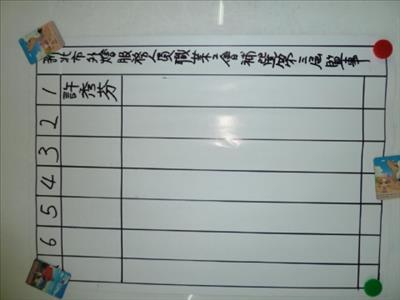 新北市外燴服務人員職業工會補選第三屆監事
1 許秀芬
2
3
4
5
6